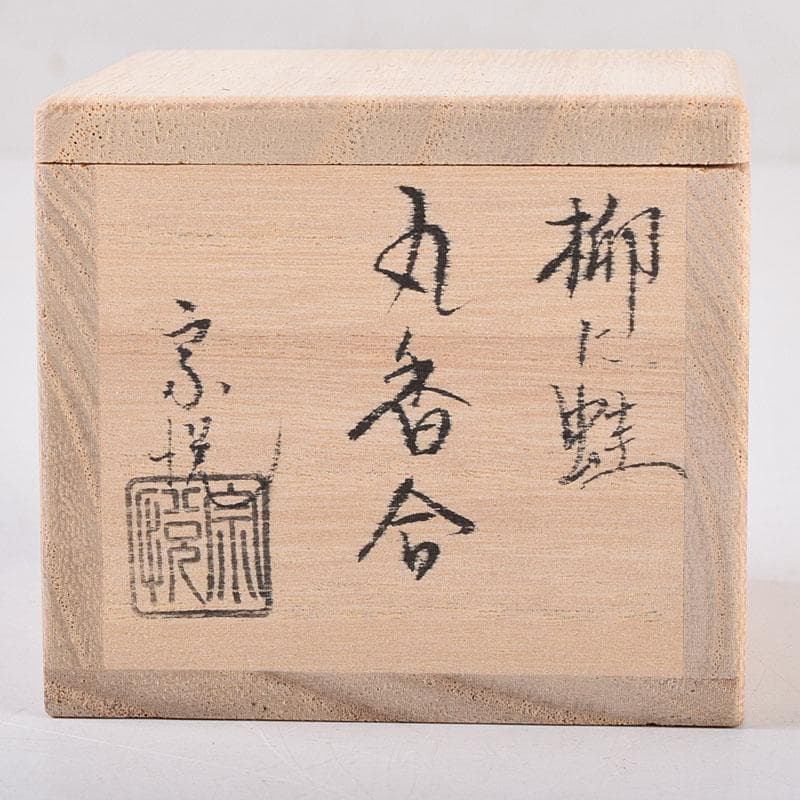 柳に蛙
丸香合
宗悦
宗悦